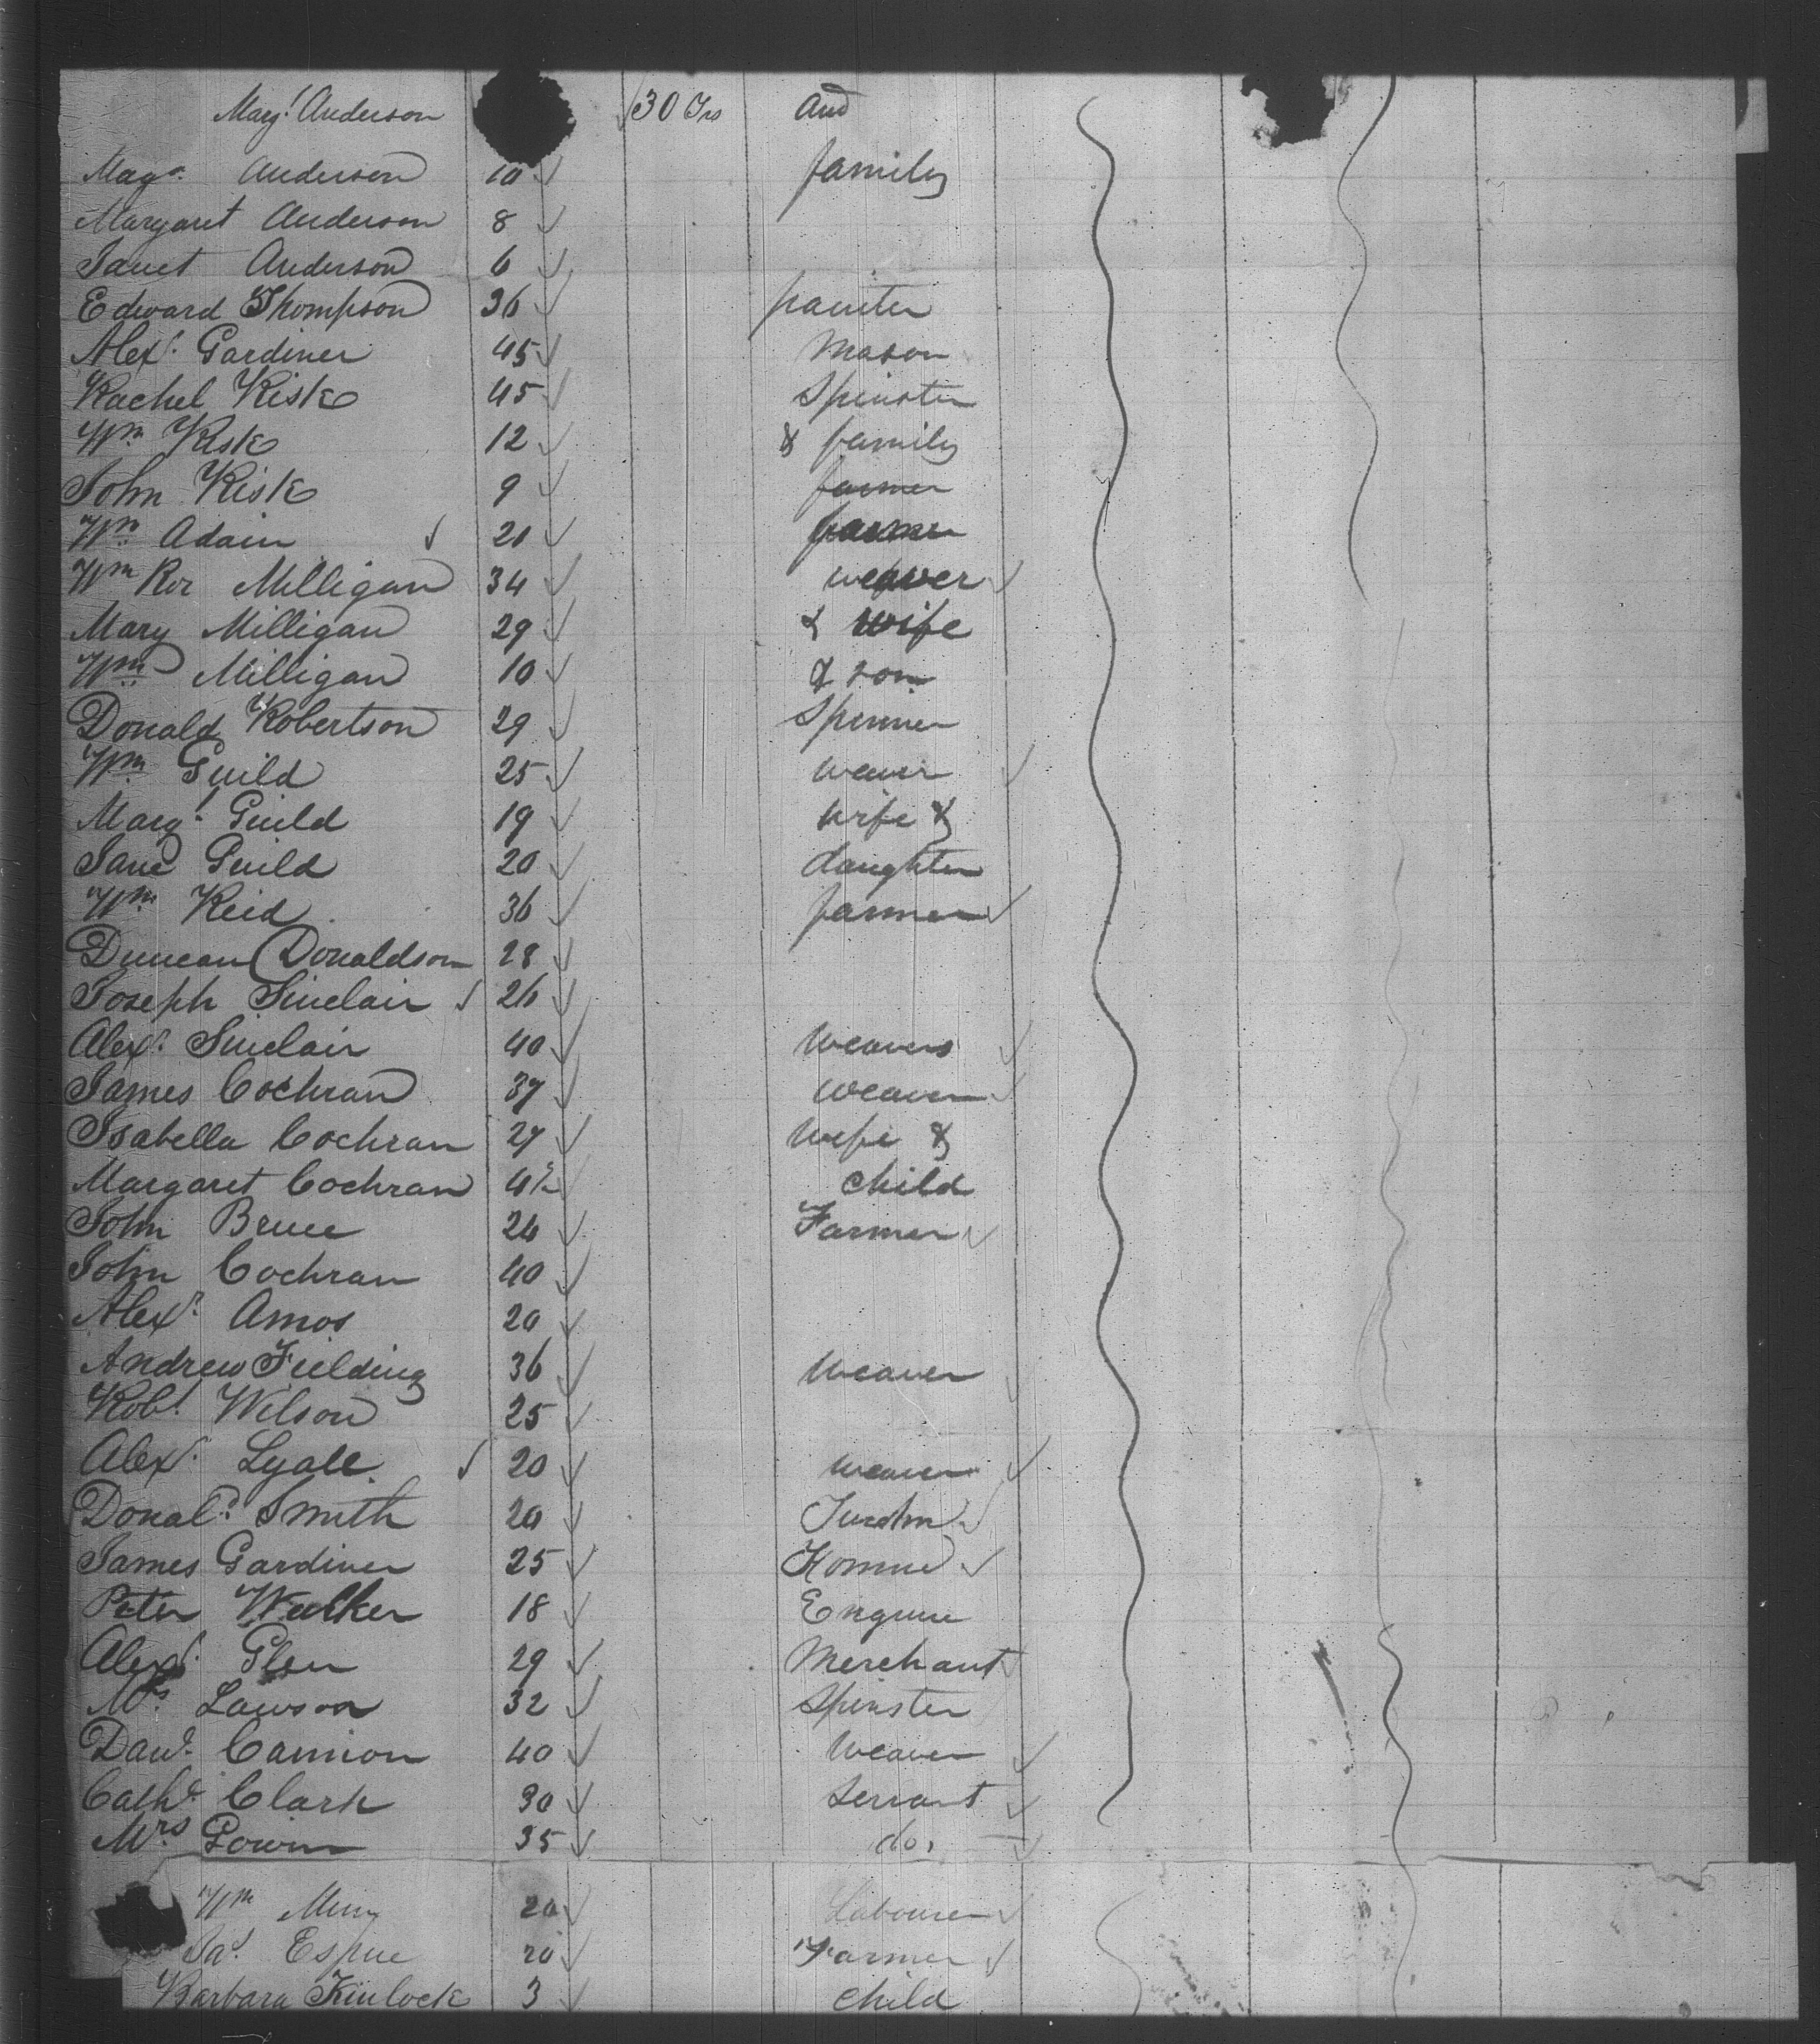 Marg.t Anderson 30 Yrs and
Mag.o Anderson 10 family
Margaret Anderson 8
Janet Anderson 6
Edward Thompson 36 painter
Alex.r Gardiner 45 Mason
Rachel Kisk 45 Spinster
Wm Kisk 12 & family
John Kisk 9 farmer
Wm Adain 21 farmer
Wm Ror Milligan 34 weaver
Mary Milligan 29 & wife
Wm Milligan 10 & son
Donald Robertson 29 Spinner
Wm Guild 25 weaver
Marg.t Guild 19 wife &
Jane Guild 20 daughter
Wm Reid 36 farmer
Duncan Donaldson 28
Joseph Sinclair 26
Alex.r Sinclair 40 Weavers
James Cochran 37 weaver
Isabella Cochran 27 wife &
Margaret Cochran 4 child
John Bruce 24 Farmer
John Cochran 40
Alex.r Amos 20
Andrew Fielding 36 Weaver
Rob.t Wilson 25
Alex.r Lyall 20 weaver
Donal.d Smith 20
James Gardiner 25
Peter Walker 18 Engine
Alex.r Glen 29 Merchant
Mrs Lawson 32 Spinster
Davd. Cannon 40 Weaver
Cath.e Clark 30 Servant
Mrs Gowin 35 do.
Wm 20 Labourer
Ja.s Espue 20 Farmer
Barbara Kinlock 3 child